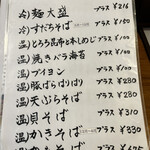 冷)麺大盛 プラス ¥216
冷)すだちそば プラス ¥150
温)とろろ昆布と本しめじ プラス ¥100
温)焼きバラ海苔 プラス ¥100
温)ブイヨン プラス ¥100
温)豚ばらばりばり プラス ¥280
温)天ぷらそば プラス ¥280
温)貝そば プラス ¥310
温)かきそば プラス ¥330
プラス